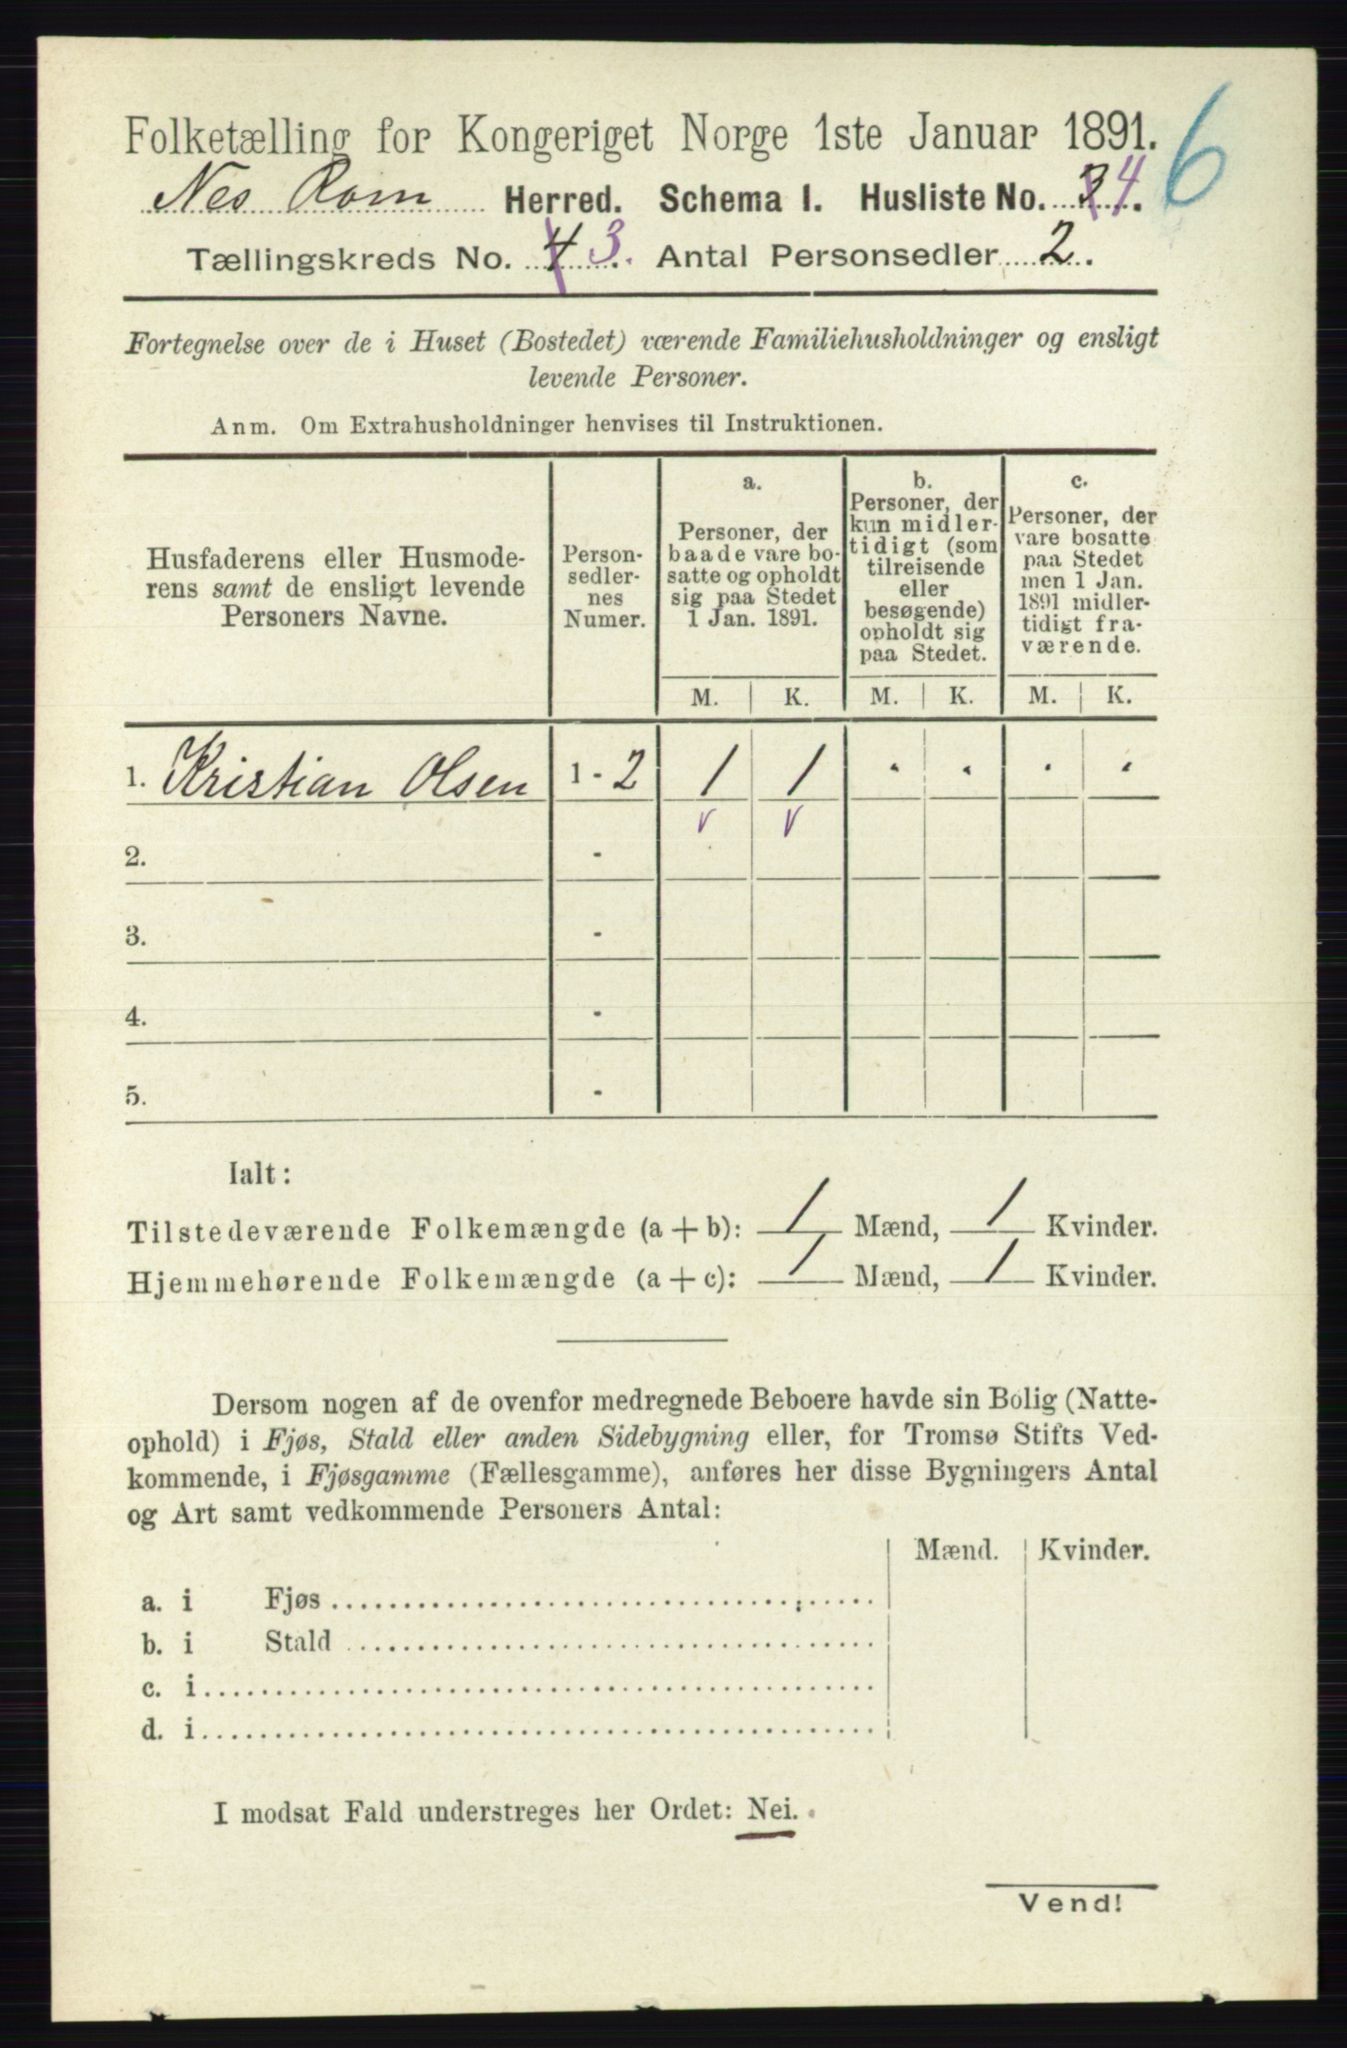 Folketælling for Kongeriget Norge 1ste Januar 1891. 6
Nes Rom Herred. Schema I. Husliste No. 3 4.
Tællingskreds No. 4 3. Antal Personsedler 2.
Fortegnelse over de i Huset (Bostedet) værende Familiehusholdninger og ensligt
levende Personer.
Anm. Om Extrahusholdninger henvises til Instruktionen.
Husfaderens eller Husmode-
rens samt de ensligt levende
Personers Navne.
Person-
sedler-
nes
Numer.
a.
Personer, der
baade vare bo-
satte og opholdt
sig paa Stedet
1 Jan. 1891.
M. K.
b.
Personer, der
kun midler-
tidigt (som
tilreisende
eller
besøgende)
opholdt sig
paa Stedet.
M. K.
c.
Personer, der
vare bosatte
paa Stedet
men 1 Jan.
1891 midler-
tidigt fra-
værende.
M. K.
1. Kristian Olsen 1 - 2 1 1 . . . .
v v
2. -
3. -
4. -
5. -
Ialt:
Tilstedeværende Folkemængde (a + b): 1 Mænd, 1 Kvinder.
Hjemmehørende Folkemængde (a + c): 1 Mænd, 1 Kvinder.
Dersom nogen af de ovenfor medregnede Beboere havde sin Bolig (Natte-
ophold) i Fjøs, Stald eller anden Sidebygning eller, for Tromsø Stifts Ved-
kommende, i Fjøsgamme (Fællesgamme), anføres her disse Bygningers Antal
og Art samt vedkommende Personers Antal:
Mænd. Kvinder.
a. i Fjøs
b. i Stald
c. i
d. i
I modsat Fald understreges her Ordet: Nei.
Vend!